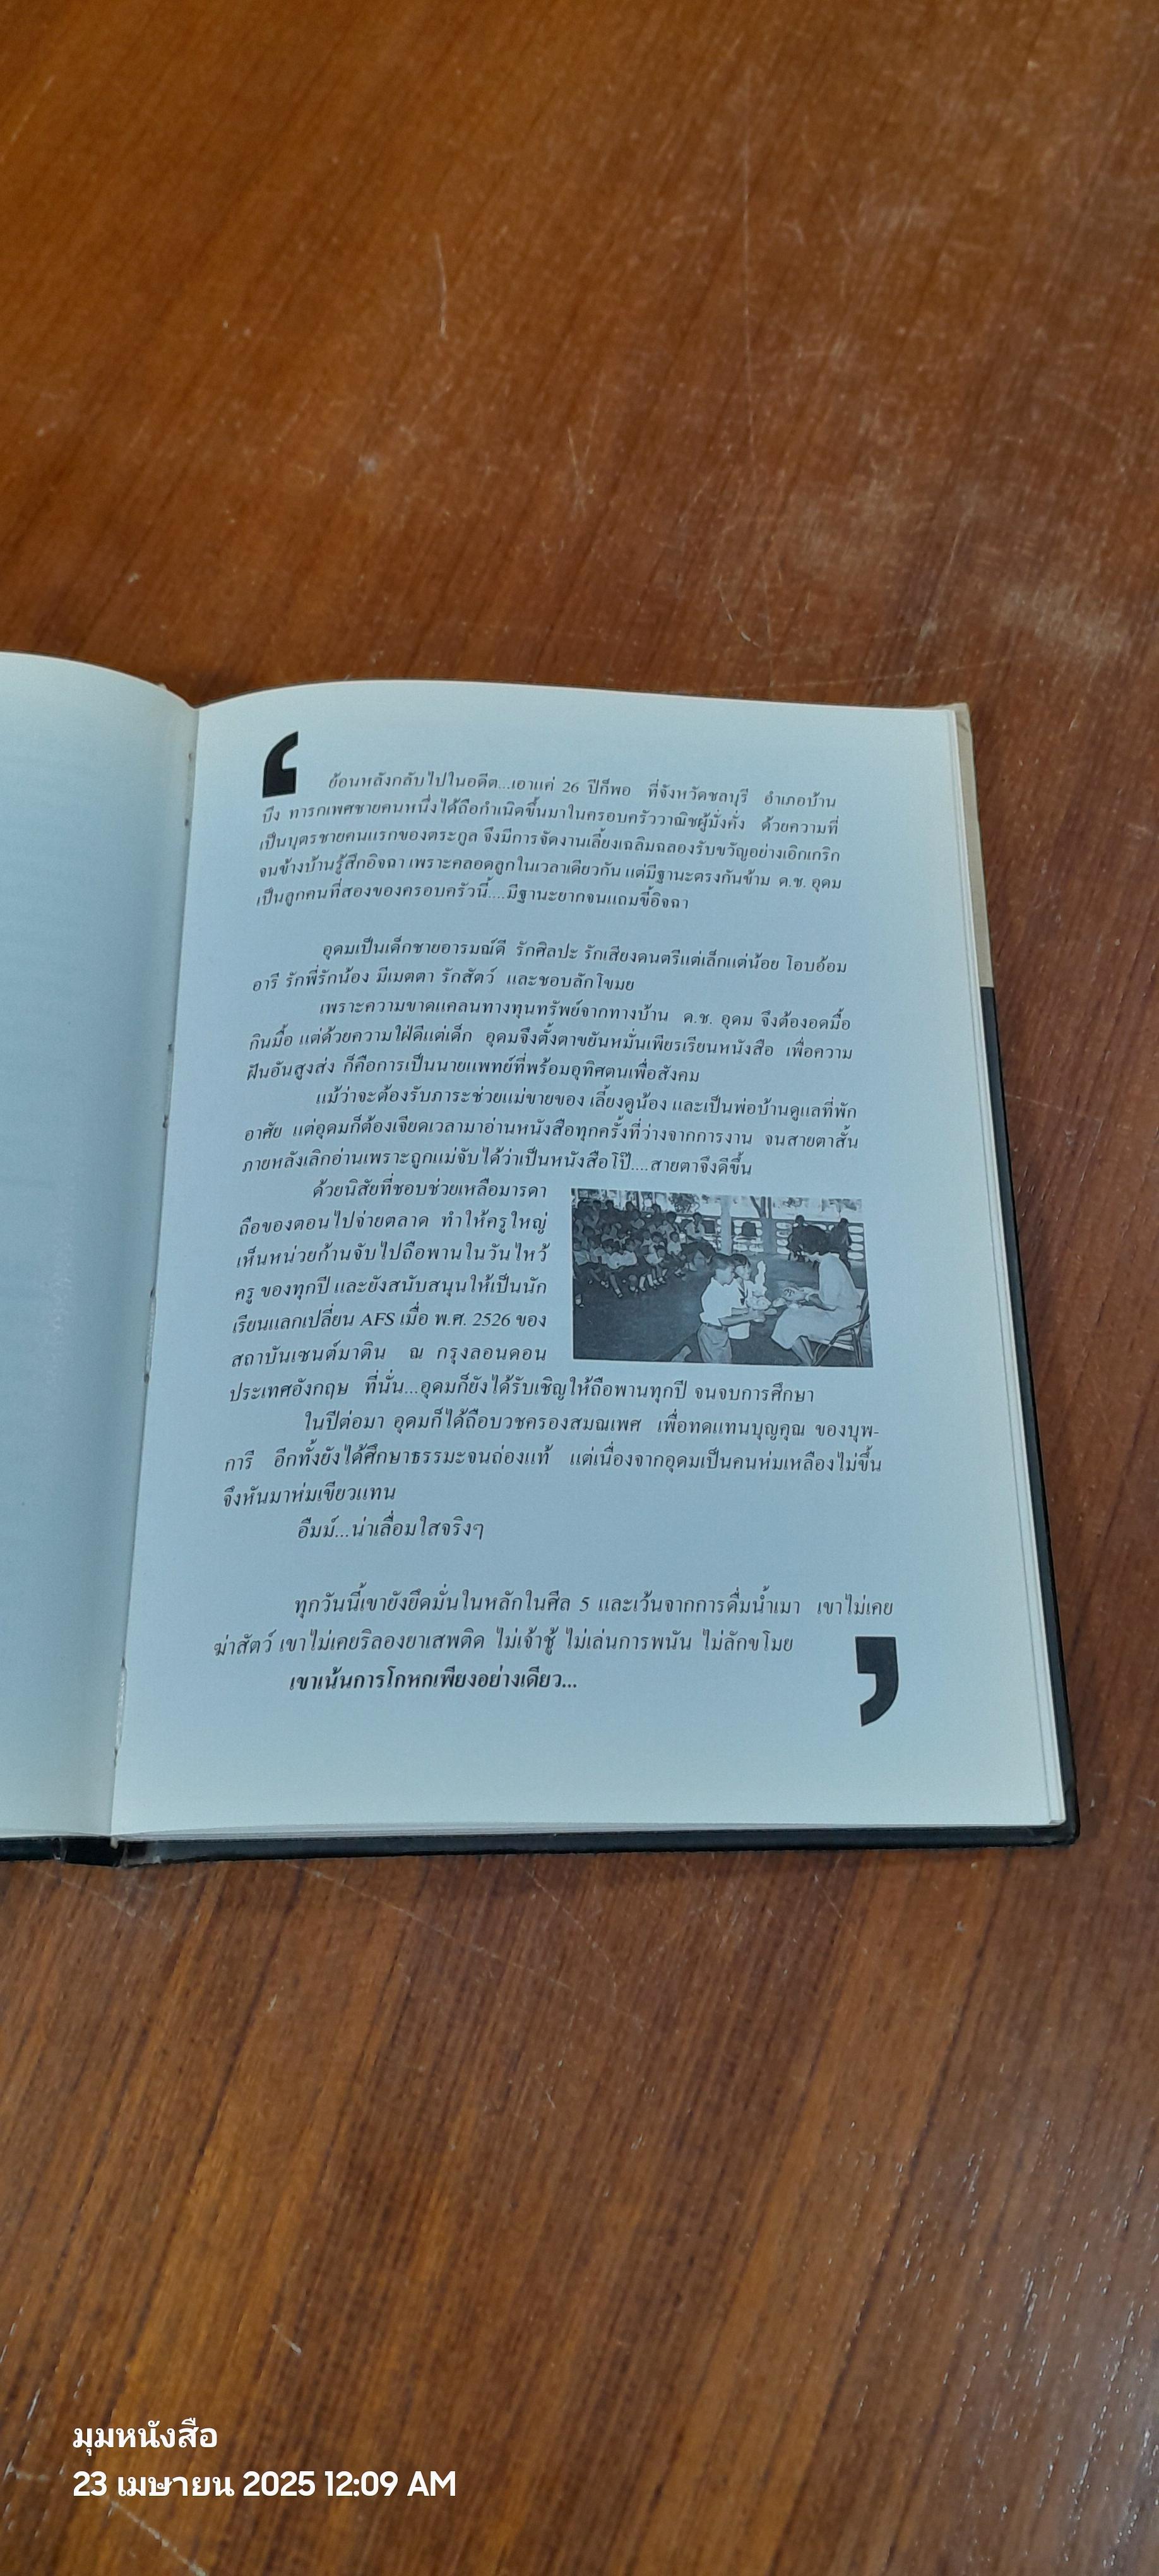 ย้อนหลังกลับไปในอดีต...เอาแค่ 26 ปีก็พอ ที่จังหวัดชลบุรี อำเภอบ้าน
บึง ทารกเพศชายคนหนึ่งได้ถือกำเนิดขึ้นมาในครอบครัววาณิชผู้มั่งคั่ง ด้วยความที่
เป็นบุตรชายคนแรกของตระกูล จึงมีการจัดงานเลี้ยงเฉลิมฉลองรับขวัญอย่างเอิกเกริก
จนข้างบ้านรู้สึกอิจฉา เพราะคลอดลูกในเวลาเดียวกัน แต่มีฐานะตรงกันข้าม ด.ช. อุดม
เป็นลูกคนที่สองของครอบครัวนี้....มีฐานะยากจนแถมขี้อิจฉา
อุดมเป็นเด็กชายอารมณ์ดี รักศิลปะ รักเสียงดนตรีแต่เล็กแต่น้อย โอบอ้อม
อารี รักพี่รักน้อง มีเมตตา รักสัตว์ และชอบลักโขมย
เพราะความขาดแคลนทางทุนทรัพย์จากทางบ้าน ด.ช. อุดม จึงต้องอดมื้อ
กินมื้อ แต่ด้วยความใฝ่ดีแต่เด็ก อุดมจึงตั้งตาขยันหมั่นเพียรเรียนหนังสือ เพื่อความ
ฝันอันสูงส่ง ก็คือการเป็นนายแพทย์ที่พร้อมอุทิศตนเพื่อสังคม
แม้ว่าจะต้องรับภาระช่วยแม่ขายของ เลี้ยงดูน้อง และเป็นพ่อบ้านดูแลที่พัก
อาศัย แต่อุดมก็ต้องเจียดเวลามาอ่านหนังสือทุกครั้งที่ว่างจากการงาน จนสายตาสั้น
ภายหลังเลิกอ่านเพราะถูกแม่จับได้ว่าเป็นหนังสือโป๊....สายตาจึงดีขึ้น
ด้วยนิสัยที่ชอบช่วยเหลือมารดา
ถือของตอนไปจ่ายตลาด ทำให้ครูใหญ่
เห็นหน่วยก้านจับไปถือพานในวันไหว้
ครู ของทุกปี และยังสนับสนุนให้เป็นนัก
เรียนแลกเปลี่ยน AFS เมื่อ พ.ศ. 2526 ของ
สถาบันเซนต์มาติน ณ กรุงลอนดอน
ประเทศอังกฤษ ที่นั่น...อุดมก็ยังได้รับเชิญให้ถือพานทุกปี จนจบการศึกษา
ในปีต่อมา อุดมก็ได้ถือบวชครองสมณเพศ เพื่อทดแทนบุญคุณ ของบุพ-
การี อีกทั้งยังได้ศึกษาธรรมะจนถ่องแท้ แต่เนื่องจากอุดมเป็นคนห่มเหลืองไม่ขึ้น
จึงหันมาห่มเขียวแทน
อืมม์...น่าเลื่อมใสจริงๆ
ทุกวันนี้เขายังยึดมั่นในหลักในศีล 5 และเว้นจากการดื่มน้ำเมา เขาไม่เคย
ฆ่าสัตว์ เขาไม่เคยริลองยาเสพติด ไม่เจ้าชู้ ไม่เล่นการพนัน ไม่ลักขโมย
เขาเน้นการโกหกเพียงอย่างเดียว...
มุมหนังสือ
23 เมษายน 2025 12:09 AM